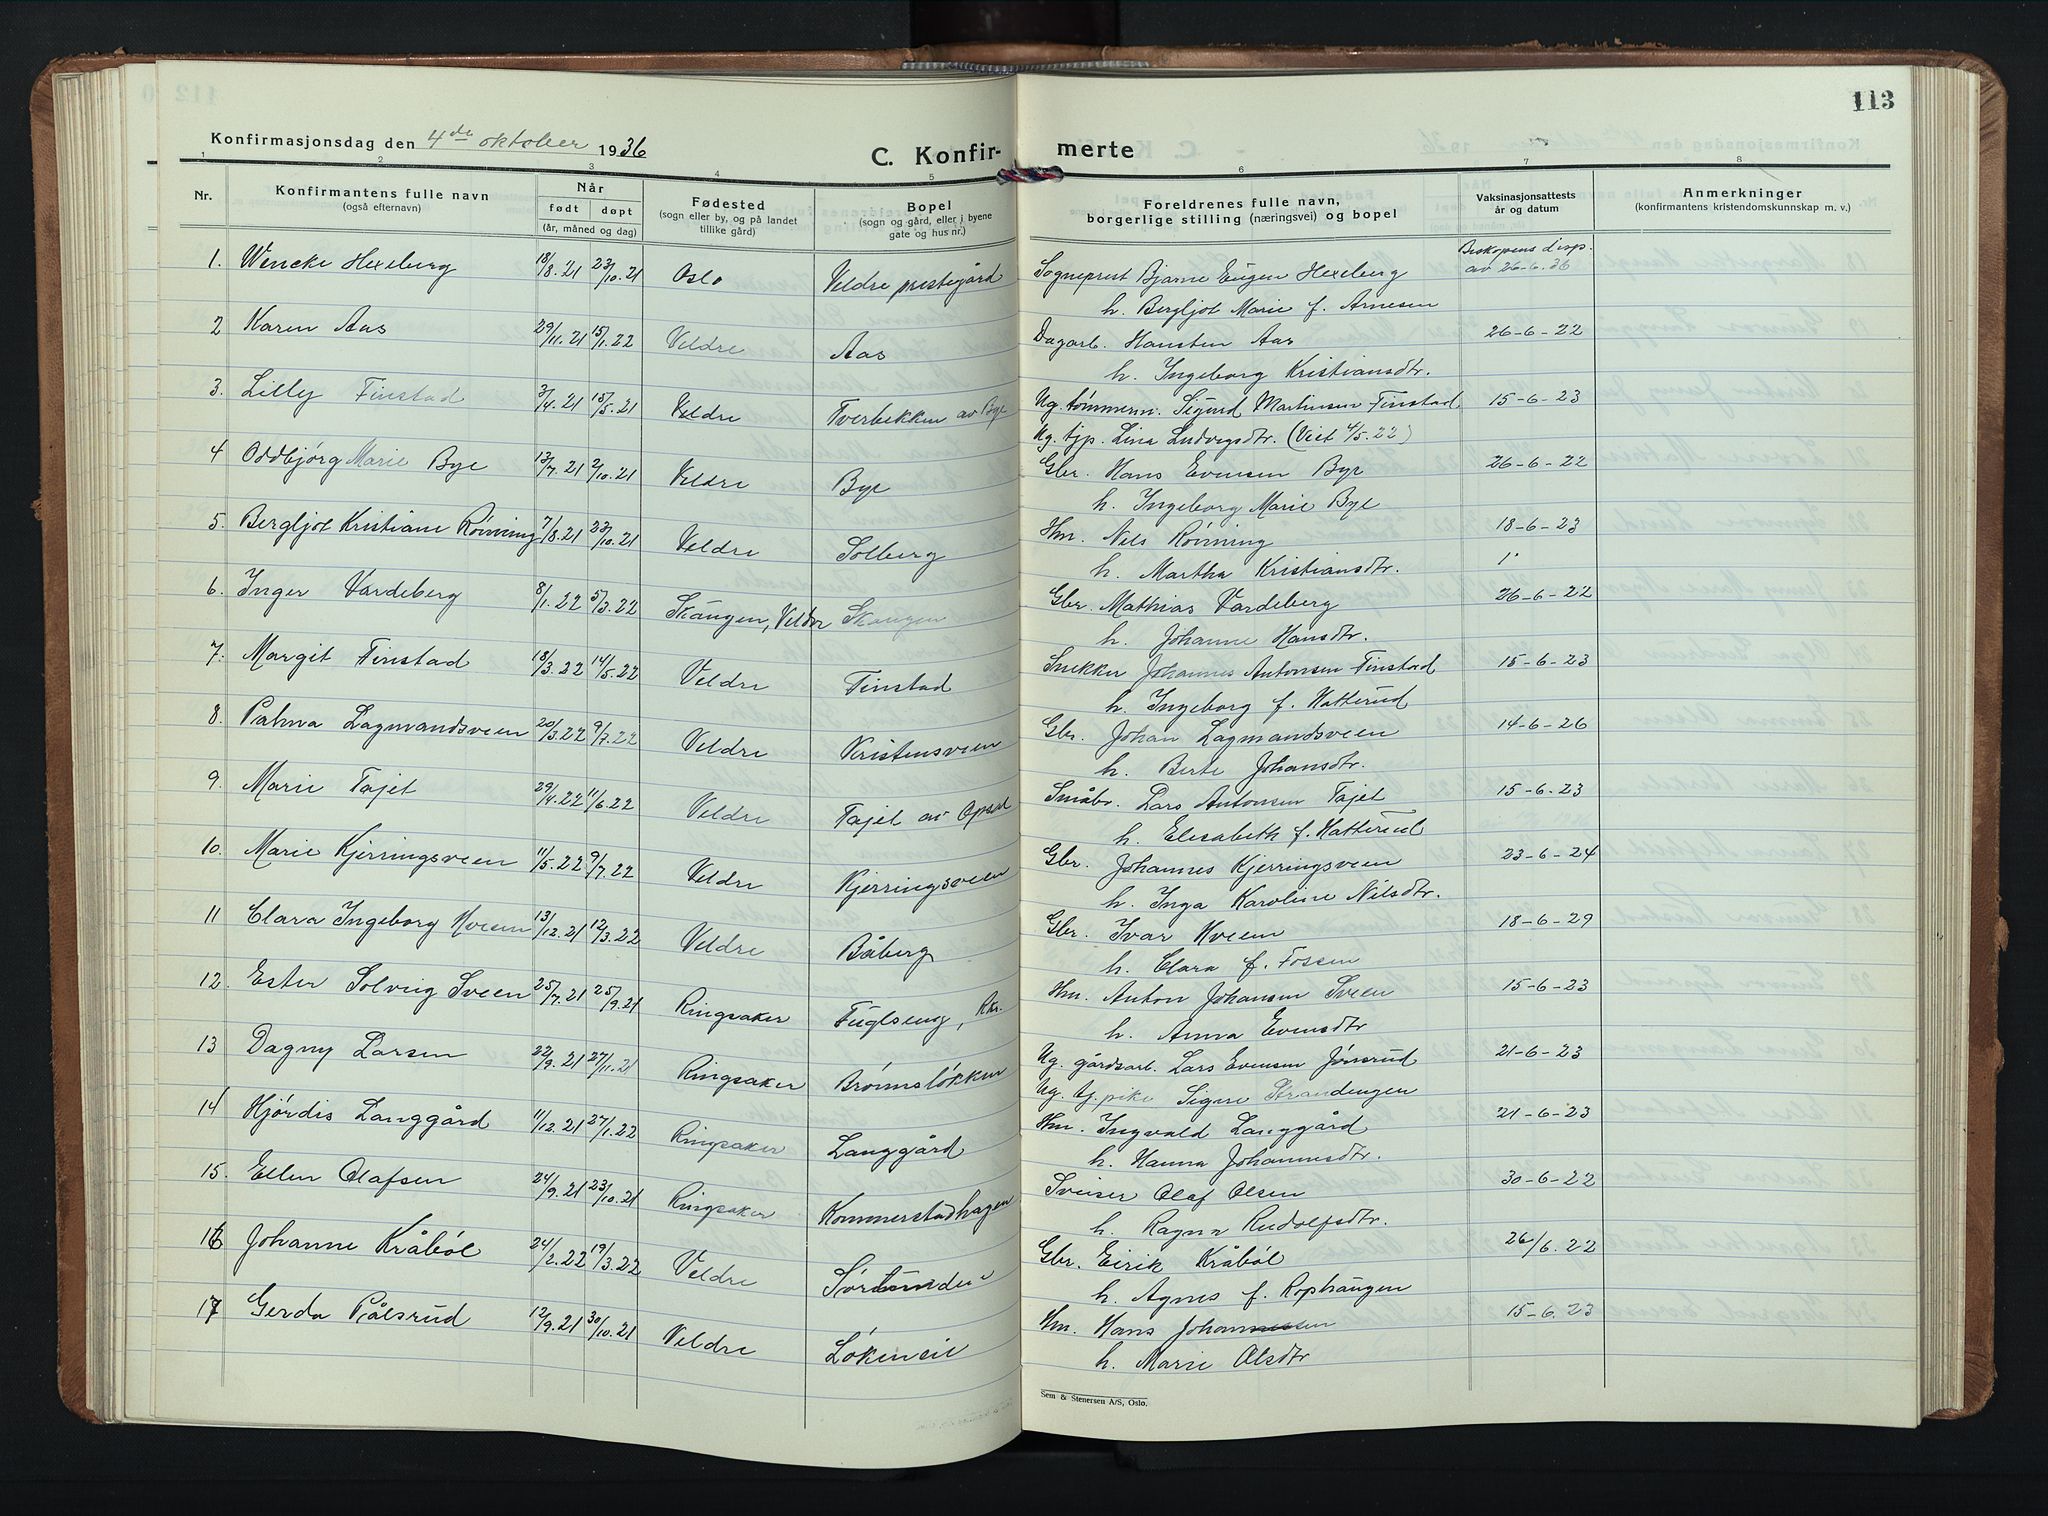 113
Konfirmasjonsdag den 4de oktober 1936
C. Konfir- merte
1 2 3 4 5 6 7 8
Nr.
Konfirmantens fulle navn
(også efternavn)
Når
født døpt
(år, måned og dag)
Fødested
(sogn eller by, og på landet
tillike gård)
Bopel
(sogn og gård, eller i byene
gate og hus nr.)
Foreldrenes fulle navn,
borgerlige stilling (næringsvei) og bopel
Vaksinasjonsattests
år og datum
Anmerkninger
(konfirmantens kristendomskunnskap m. v.)
1. Wencke Hexeberg 18/8.21 23/10.21 Oslo Veldre prestegård Sogneprest Bjarne Eugen Hexeberg Biskopens disp. av 26-6.36
h. Bergljot Marie f. Arnesen
2 Karen Aas 29/11.21 15/1.22 Veldre Aas Dagarb. Hansten Aas 26-6-22
h. Ingeborg Kristiansdtr.
3. Lilly Finstad 3/4.21 15/5.21 Veldre Tverbekken av Bye Ug. tømmerm. Sigurd Martinsen Finstad 15-6-23
Ug. tjp. Lina Ludvigsdtr. (Viet 4/5.22)
4 Oddbjørg Marie Bye 13/7.21 2/10.21 Veldre Bye Gbr. Hans Evensen Bye 26-6-22
h. Ingeborg Marie Bye
5. Bergljot Kristiane Rønning 7/8.21 23/10.21 Veldre Solberg Hm. Nils Rønning 18-6-23
h. Martha Kristiansdtr.
6. Inger Vardeberg 8/1.22 5/3.22 Skaugen, Veldre Skaugen Gbr. Mathias Vardeberg 26-6-22
h. Johanne Hansdtr.
7. Margit Finstad 18/3.22 14/5.22 Veldre Finstad Snekker Johannes Antonsen Finstad 15-6-23
h. Ingeborg f. Hatterud
8. Palma Lagmandsveen 20/3.22 9/7.22 Veldre Kristensveen Gbr. Johan Lagmandsveen 14-6-26
h. Berte Johansdtr.
9. Marie Tajet 29/4.22 11/6.22 Veldre Tajet av Opsal Småbr. Lars Antonsen Tajet 15-6-23
h. Elisabeth f. Hatterud
10. Marie Kjerringsveen 11/5.22 9/7.22 Veldre Kjerringsveen Gbr. Johannes Kjerringsveen 23-6-24
h. Inga Karoline Nilsdtr.
11 Clara Ingeborg Hveem 13/12.21 12/3.22 Veldre Båberg Gbr. Ivar Hveem 18-6-29
h. Clara f. Fossen
12. Ester Solveig Sveen 25/7.21 25/9.21 Ringsaker Fuglseng, Rks. Hm. Anton Johansen Sveen 15-6-23
h. Anna Evensdtr
13 Dagny Larsen 22/9.21 27/11.21 Ringsaker Brønnsløkken Ug. gårdsarb. Lars Evensen Jønsrud 21-6-23
Ug. tj. pike Signe Strandengen
14 Hjørdis Langgård 11/12.21 27/1.22 Ringsaker Langgård Hm. Ingvald Langgård 21-6-23
h. Hanna Johannesdtr.
15. Ellen Olafsen 24/9.21 23/10.21 Ringsaker Kommerstadhagen Sveiser Olaf Olsen 30-6-22
h. Ragna Rudolfsdtr.
16 Johanne Kråbøl 24/2.22 19/3.22 Veldre Gbr. Eirik Kråbøl 26/6.22
h. Agnes f. Rophaugen
17 Gerda Pålsrud 12/9.21 30/10.21 Veldre Løkeneie Hm. Hans Johannessen 15-6.23
h. Marie Olsdtr
Sem & Stenersen A/S, Oslo.